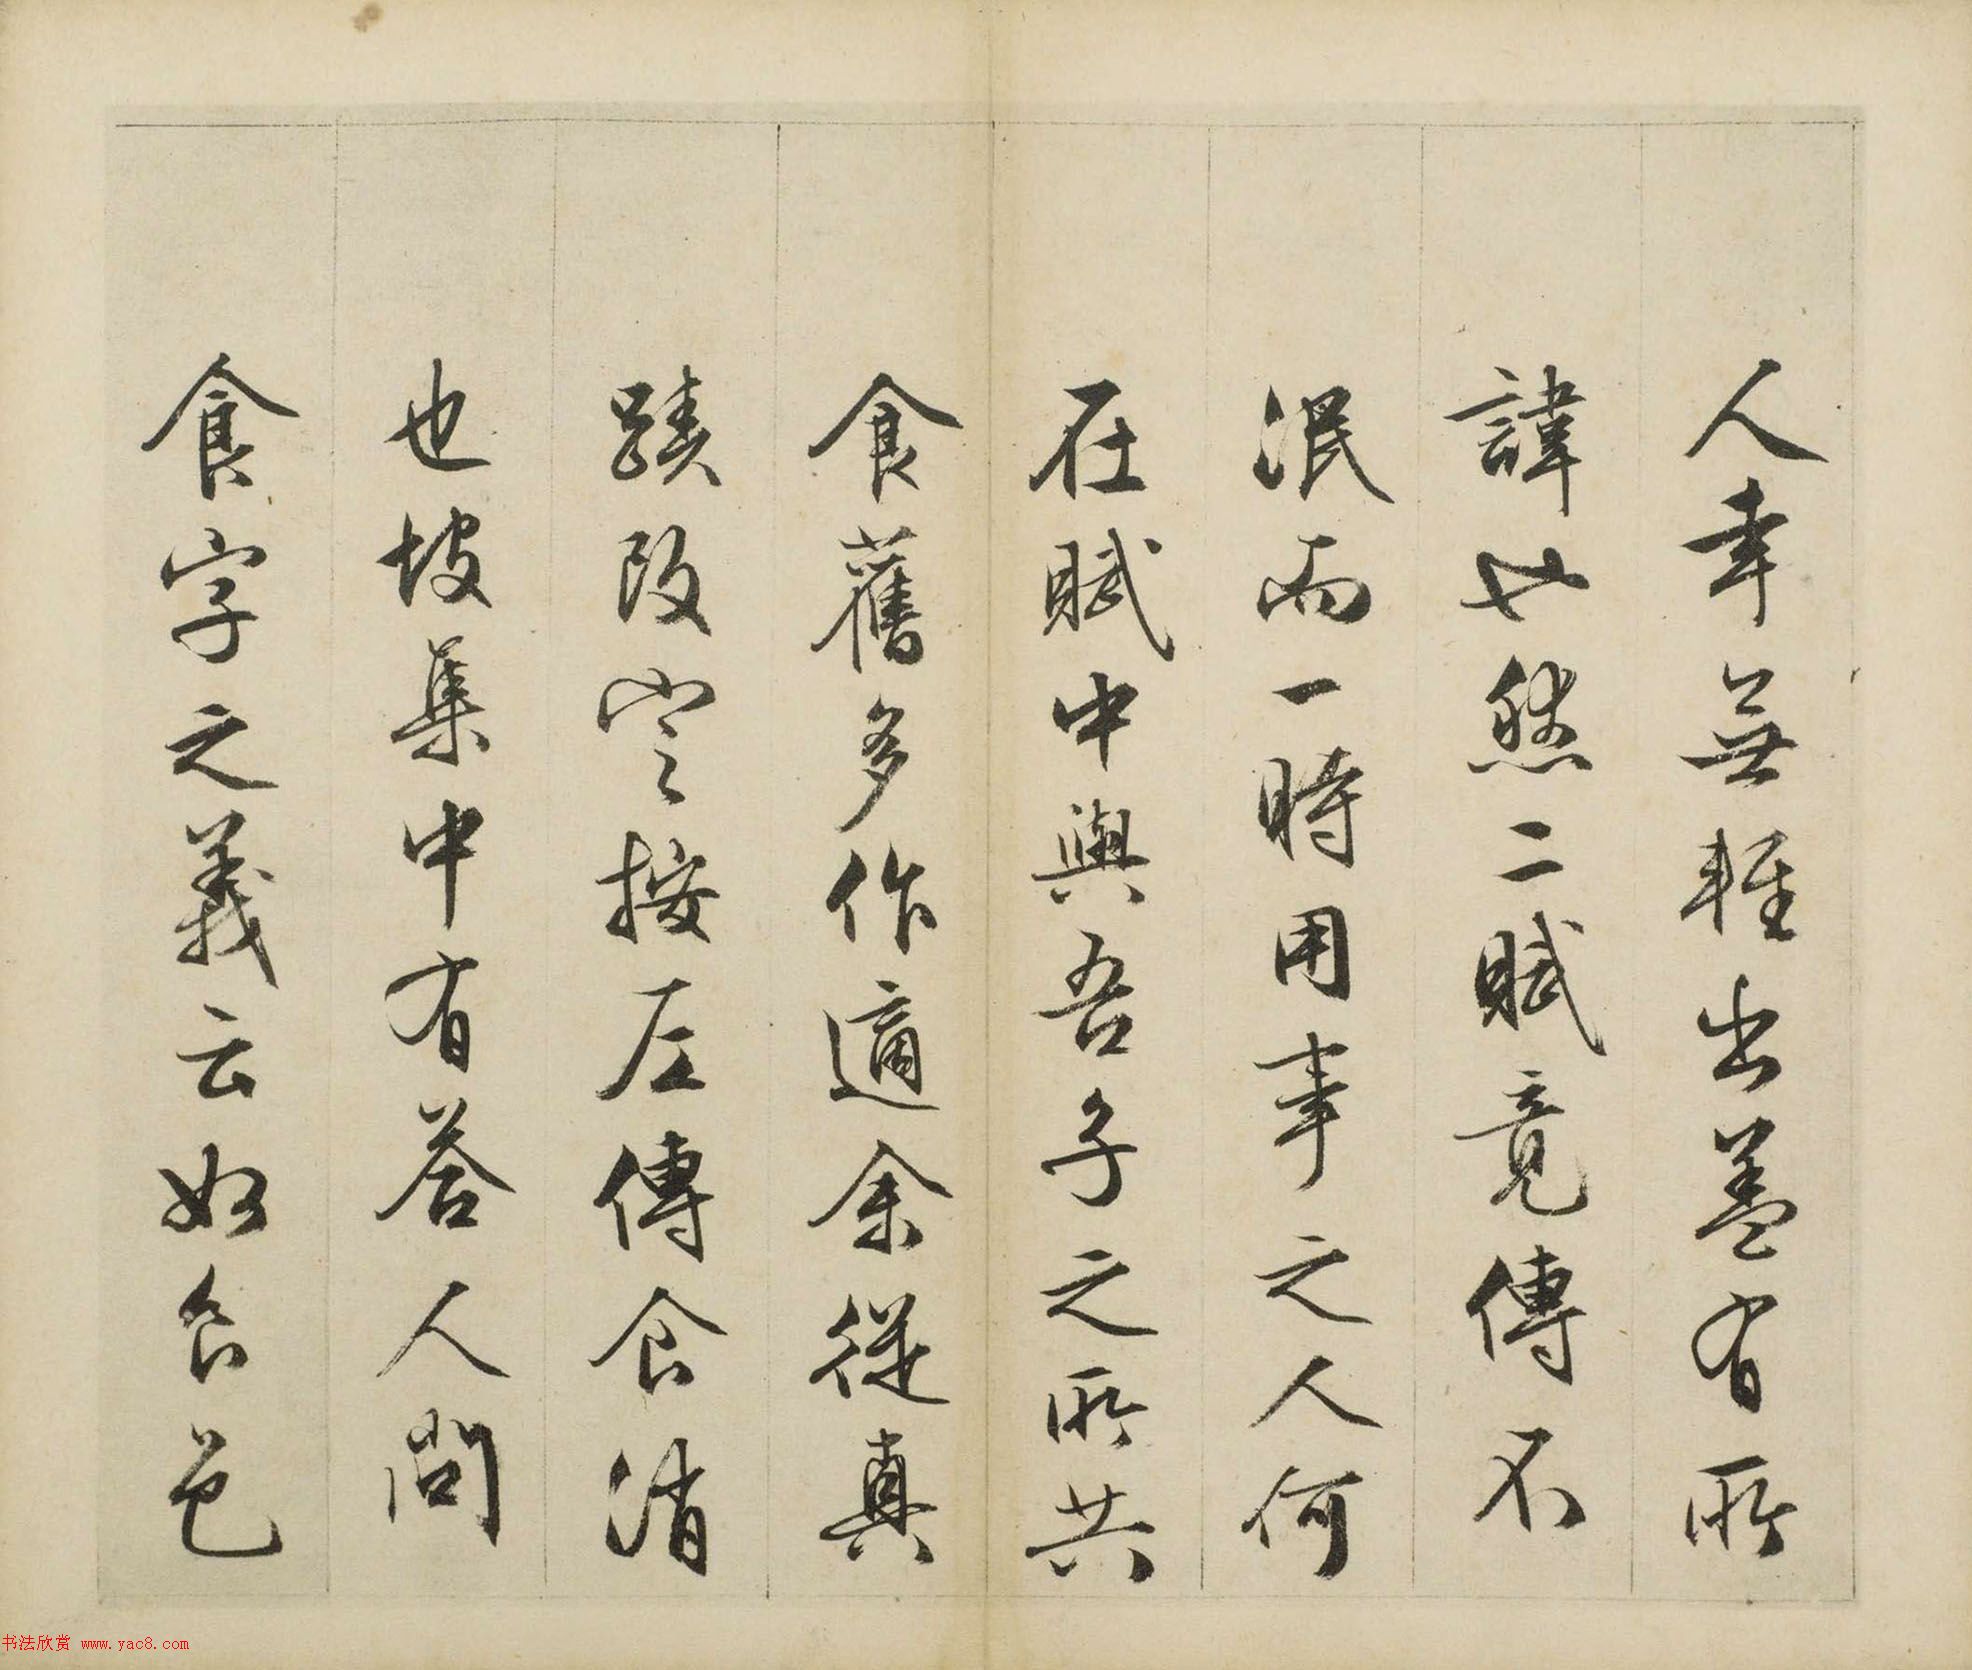 人幸無輕出蓋有所
諱也然二賦竟傳不
泯而一時用事之人何
在賦中與吾子之所共
食舊多作適余從真
蹟改定按左傳食消
也坡集中有答人問
食字之義云如食色
书法欣赏 www.yac8.com